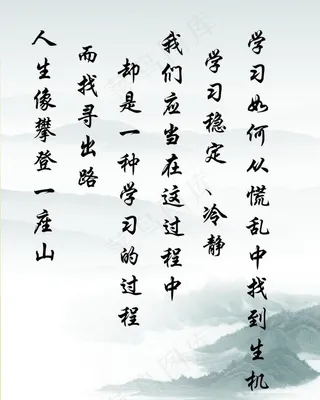 人生像攀登一座山
而找寻出路
却是一种学习的过程
我们应当在这过程中
学习稳定、冷静
学习如何从慌乱中找到生机